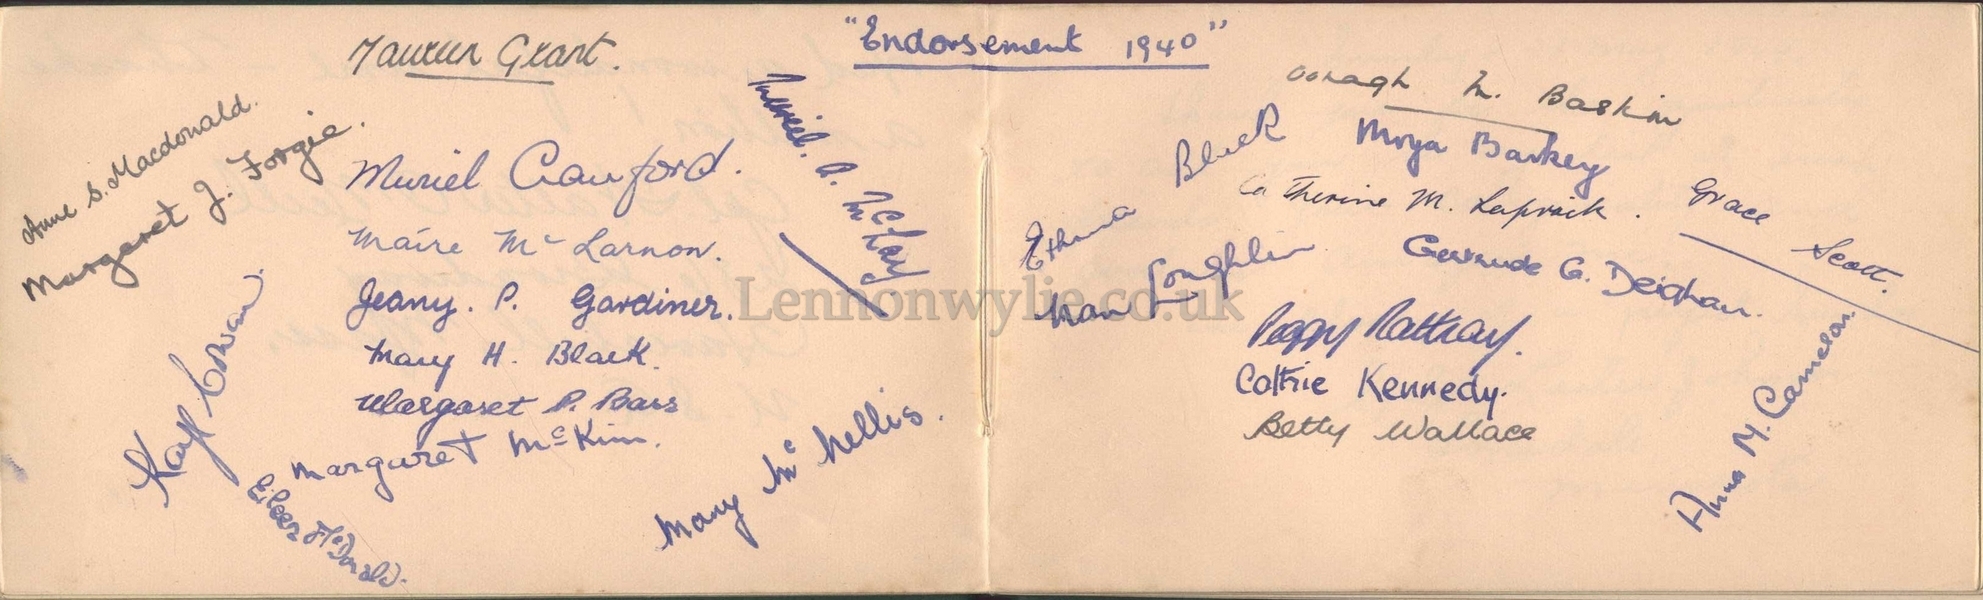 "Endorsement 1940"
Maureen Grant.
Anne S. Macdonald.
Margaret J. Forgie.
Muriel Crawford.
Maire Mc Larnon.
Jeany. P. Gardiner.
Mary H. Black.
Margaret P. Bass
Margaret McKim.
Kay Cowan
Eileen McDonald.
Mary Mc Nellis.
Muriel. A. McKay
Oonagh M. Baskin
Moya Barkey
Ethna Black
Catherine M. Lapraik.
Grace Scott.
Nan Loughlin
Gertrude G. Deighan.
Lennonwylie.co.uk
Peggy Rattray.
Cathie Kennedy.
Betty Wallace
Anna M. Cameron.